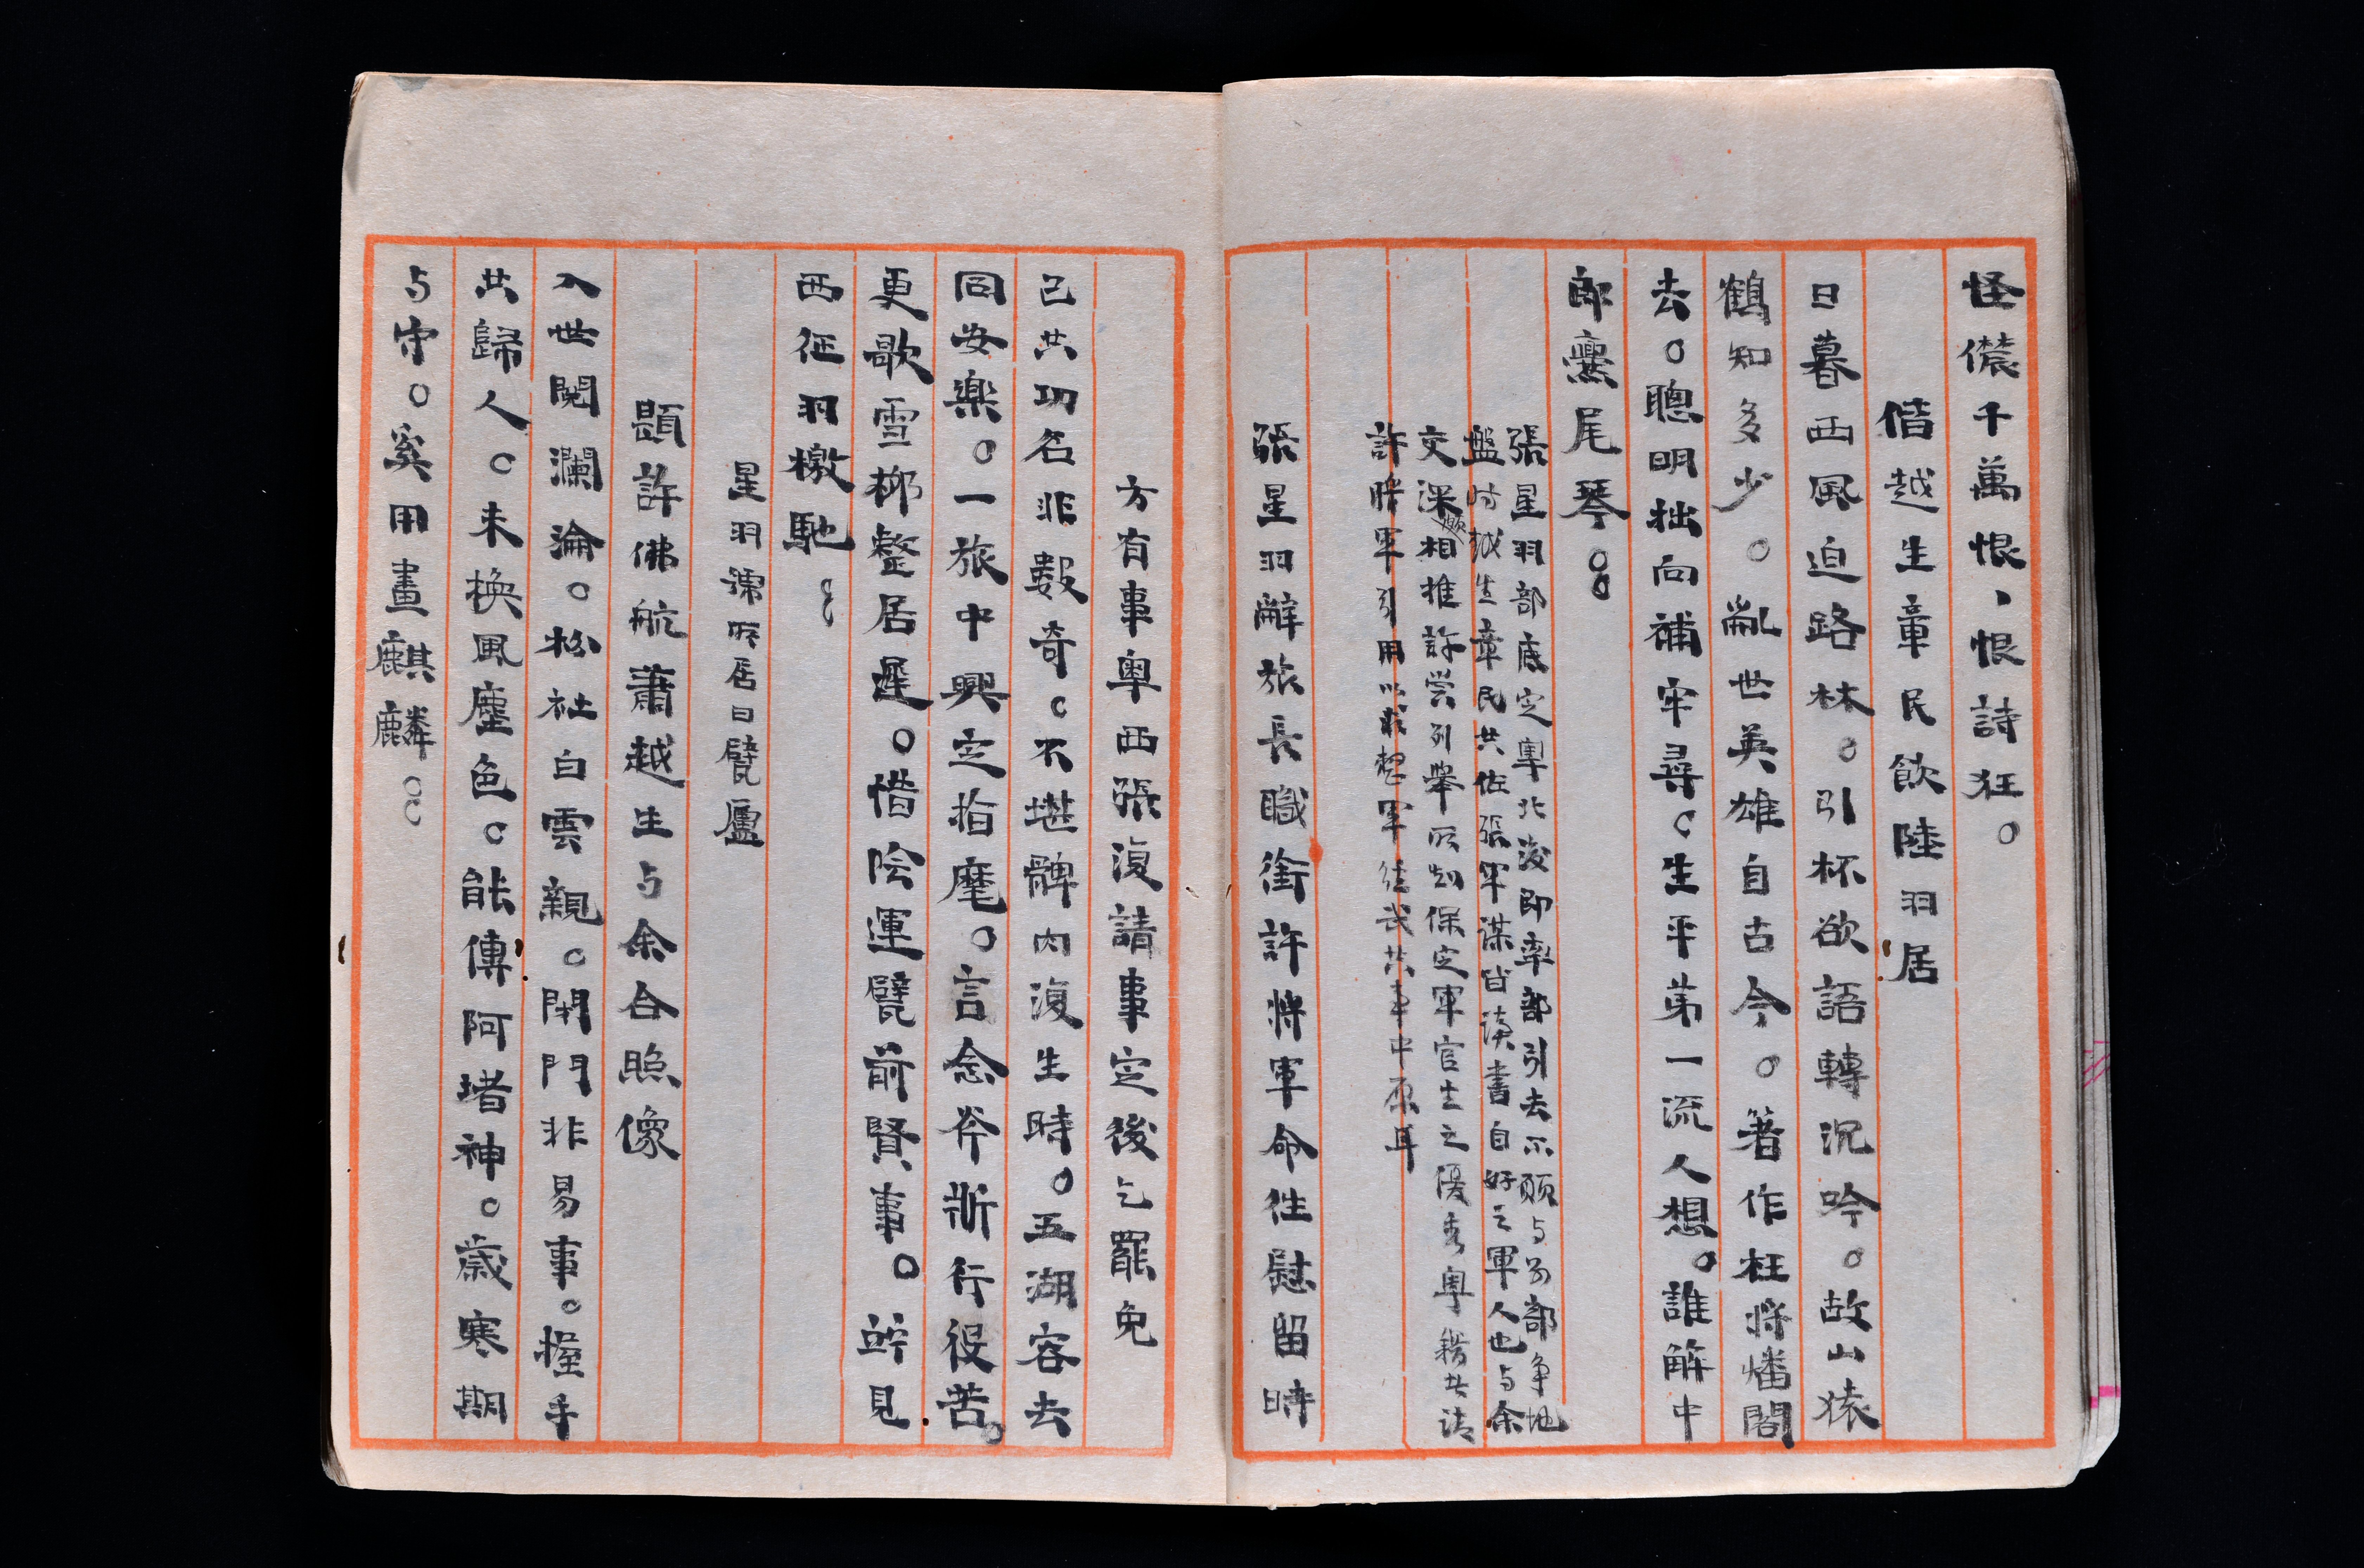 怪儂千萬恨、恨詩狂。
偕越生章民飲陸羽居
日暮西風迫路林。引杯欲語轉沉吟。故山猿
鶴知多少。亂世英雄自古今。著作枉將燔閣
去。聰明拙向補牢尋。生平弟一流人想。誰解中
郎爨尾琴。
張星羽部底定粵北後即率部引去不願与分部争地
盤時越生章民共佐張軍謀皆讀書自好之軍人也与余
交深相推許嘗列舉所知保定軍官生之優秀粵籍者請
許將軍引用以求整軍経武共事中原耳
張星羽辭旅長職銜許將軍命往慰留時
方有事粵西張復請事定後乞罷免
已共功名非數奇。不堪髀肉復生時。五湖容去
同安樂。一旅中興定指麾。言念斧斨行役苦。
更歌雪柳整居遲。惜陰運甓前賢事。竚見
西征羽檄馳。
星羽源所居曰甓廬
題許佛航蕭越生与余合照像
入世閱瀾淪。松社白雲親。閉門非易事。握手
共歸人。未換風塵色。能傳阿堵神。歲寒期
与守。奚用畫麒麟。